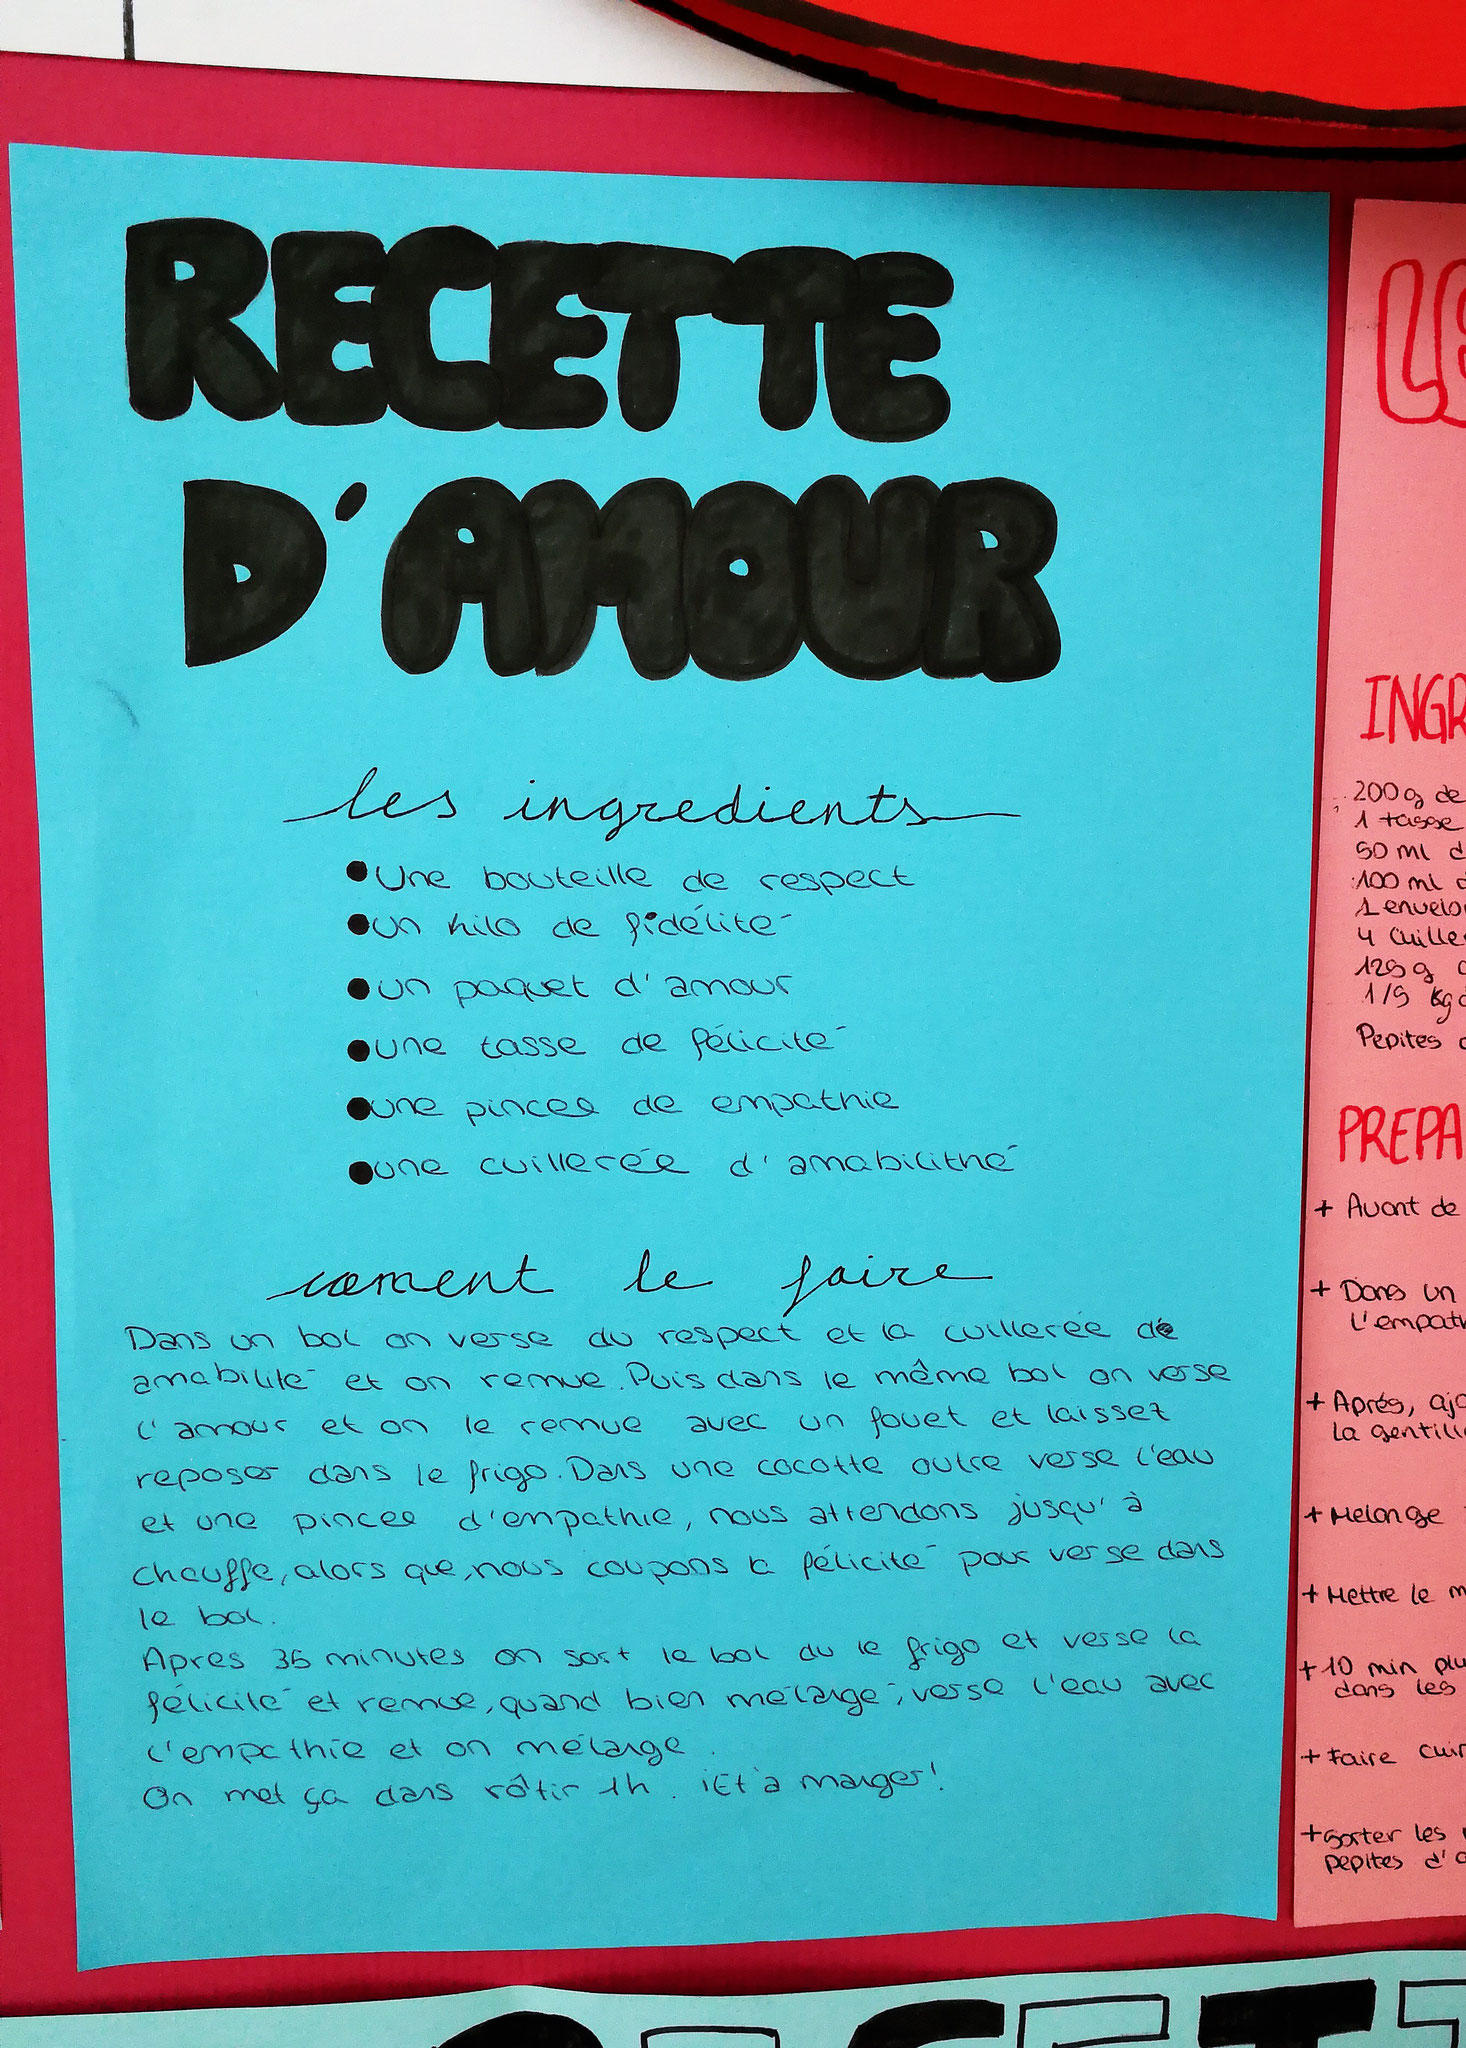 RECETTE
D'AMOUR
les ingredients
Une bouteille de respect
un kilo de fidélité
un paquet d'amour
une tasse de félicité
une pincee de empathie
une cuillerée d'amabilithé
coment le faire
Dans un bol on verse du respect et la cuillerée de
amabilité et on remue. Puis dans le même bol on verse
l'amour et on le remue avec un fouet et laissez
reposer dans le frigo. Dans une cocotte outre verse l'eau
et une pincee d'empathie, nous attendons jusqu'à
chauffe, alors que, nous coupons la félicité pour verse dans
le bol.
Apres 35 minutes on sort le bol du le frigo et verse la
félicité et remue, quand bien mélangé, verse l'eau avec
l'empathie et on mélange.
On met ça dans rôtir 1h. ¡Et à manger!
LE
INGR
200g de
1 tasse
50 ml d
100 ml d
1 envelo
4 cuille
125g
1/5 kg d
Pepites d
PREPA
+ Avant de
+ Dans un
L'empath
+ Aprés, ajo
la gentill
+ Melange
+ Mettre le m
+ 10 min plu
dans les
+ Faire cuir
+ sorter les
pepites d'